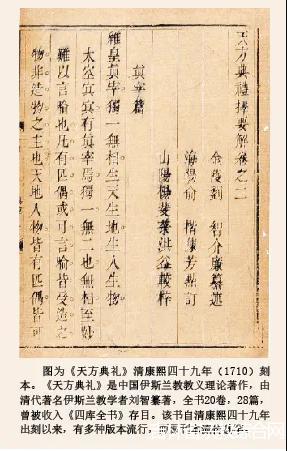 天方典禮擇要解卷之二
金陵劉 智介廉纂述
海陵俞 楷 芳 訂
山陽楊斐菉淇谷較梓
真宰篇
維皇真宰獨一無相生天生地生人生物
太空冥冥有真宰焉獨一無二也無相至妙
難以言喻也凡有匹偶或可言喻皆受造之
物非造物之主也天地人物皆有匹偶皆可
图为《天方典礼》清康熙四十九年（1710）刻
本。《天方典礼》是中国伊斯兰教教义理论著作，由
清代著名伊斯兰教学者刘智纂著，全书20卷，28篇，
曾被收入《四库全书》存目。该书自清康熙四十九年
出刻以来，有多种版本流行，